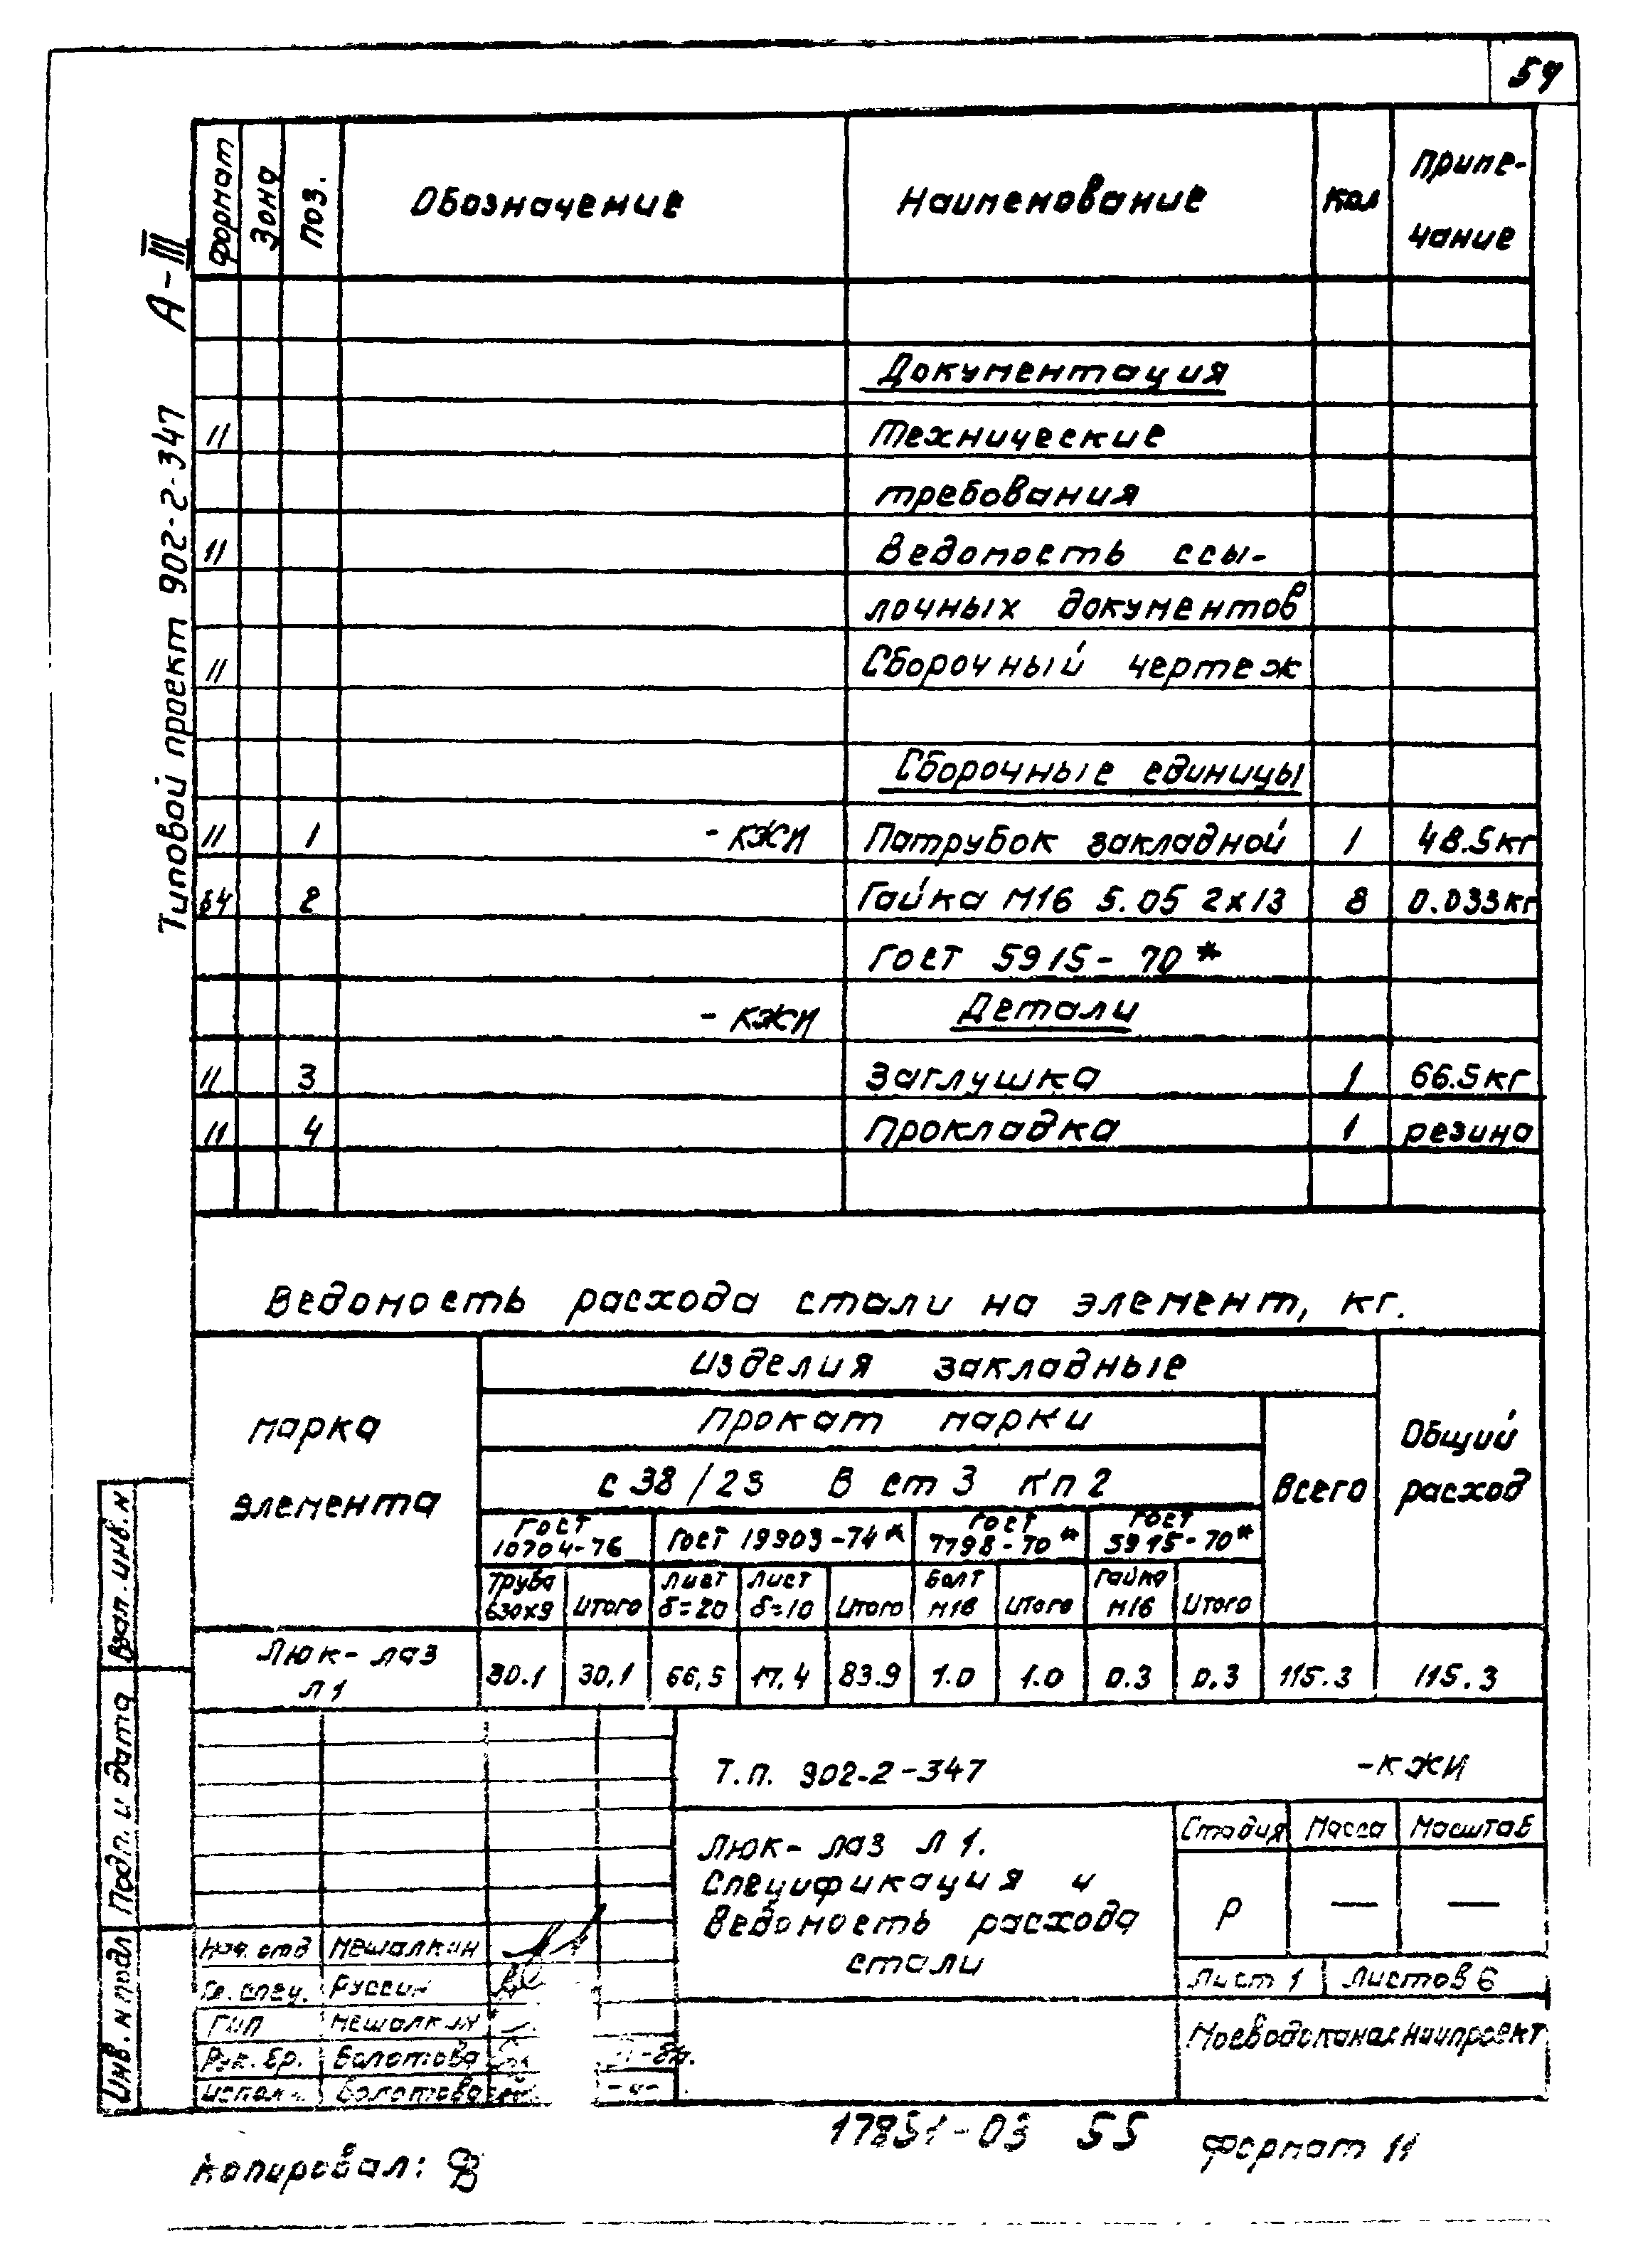 54
Типовой проект 902-2-347 А-III
формат Зона поз. Обозначение Наименование Кол Приме-
чание
Документация
11 Технические
требования
11 Ведомость ссы-
лочных документов
11 Сборочный чертеж
Сборочные единицы
11 1 -КЖИ Патрубок закладной 1 48.5кг
б4 2 Гайка М16 5.05 2х13 8 0.033кг
Гост 5915-70*
-КЖИ Детали
11 3 Заглушка 1 66.5кг
11 4 Прокладка 1 резина
Ведомость расхода стали на элемент, кг.
Марка
элемента
Изделия закладные
Прокат марки
с 38/23 В ст 3 Кп 2
Всего
Общий
расход
Гост
10704-76
Гост 19903-74*
Гост
7798-70*
Гост
5915-70*
Труба
630х9
Итого
Лист
δ=20
Лист
δ=10
Итого
Болт
М16
Итого
Гайка
М16
Итого
Люк-лаз
Л1
30.1 30,1 66,5 17.4 83.9 1.0 1.0 0.3 0.3 115.3 115.3
Взам.инв.н
Подп. и дата
Инв.н подл
Т.п. 902-2-347 -КЖИ
Люк-лаз Л 1.
Спецификация и
Ведомость расхода
стали
Стадия Масса Масштаб
Р — —
Лист 1 Листов 6
Мосводоканалниипроект
Нач. отд Мешалкин
Гл. спец. Руссин
ГИП Мешалкин
Рук. бр. Болотова
Исполн. Болотова
-"-
17851-03 55
Формат 11
Копировал: